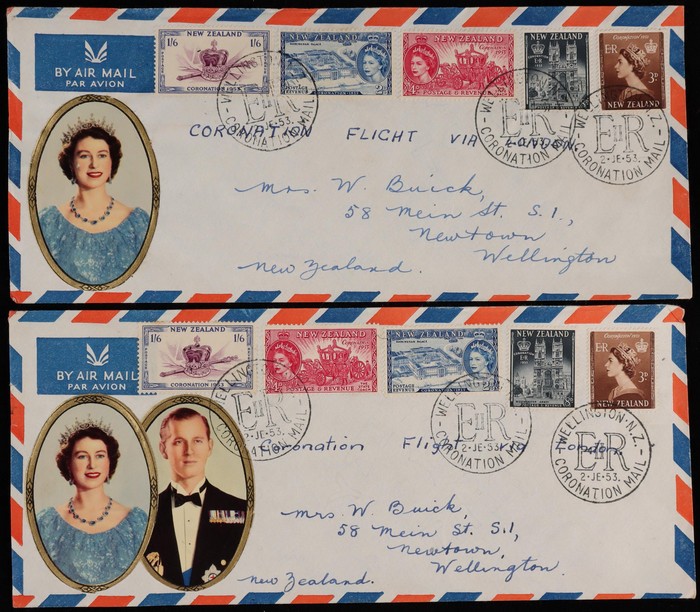 BY AIR MAIL
PAR AVION
NEW ZEALAND
1/6 1/6
CORONATION 1953
NEW ZEALAND
POSTAGE REVENUE
NEW ZEALAND
Coronation 1953
POSTAGE & REVENUE
NEW ZEALAND
Coronation 1953
E II R
3D
NEW ZEALAND
WELLINGTON
CORONATION MAIL
WELLINGTON N.Z.
E II R
2·JE·53.
CORONATION MAIL
WELLINGTON N.Z.
E II R
2·JE·53.
CORONATION MAIL
CORONATION FLIGHT VIA LONDON.
Mrs. W. Buick,
58 Mein St. S.1.,
Newtown
Wellington
New Zealand.
BY AIR MAIL
PAR AVION
NEW ZEALAND
1/6 1/6
CORONATION 1953
NEW ZEALAND
Coronation 1953
POSTAGE & REVENUE
NEW ZEALAND
POSTAGE REVENUE
NEW ZEALAND
Coronation 1953
E II R
3D
NEW ZEALAND
E II R
2·JE·53.
E II R
2·JE·53.
CORONATION MAIL
WELLINGTON·N.Z.
E II R
2·JE·53.
CORONATION MAIL
Coronation Flight via London.
Mrs. W. Buick,
58 Mein St. S.1,
Newtown,
Wellington.
New Zealand.